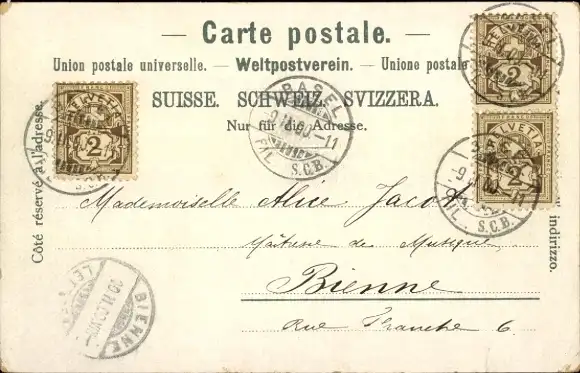 — Carte postale. —
Union postale universelle. — Weltpostverein. — Unione postale
SUISSE. SCHWEIZ. SVIZZERA.
Nur für die Adresse.
Côté réservé à l'adresse.
indirizzo.
HELVETIA
2
HELVETIA
2
HELVETIA
2
BASEL
-11
FIL.
S.C.B.
BASEL
-9
-11
FIL.
S.C.B.
S.C.B.
Mademoiselle Alice Jacot
Maîtresse de Musique
Bienne
Rue Franche 6.
BIENNE